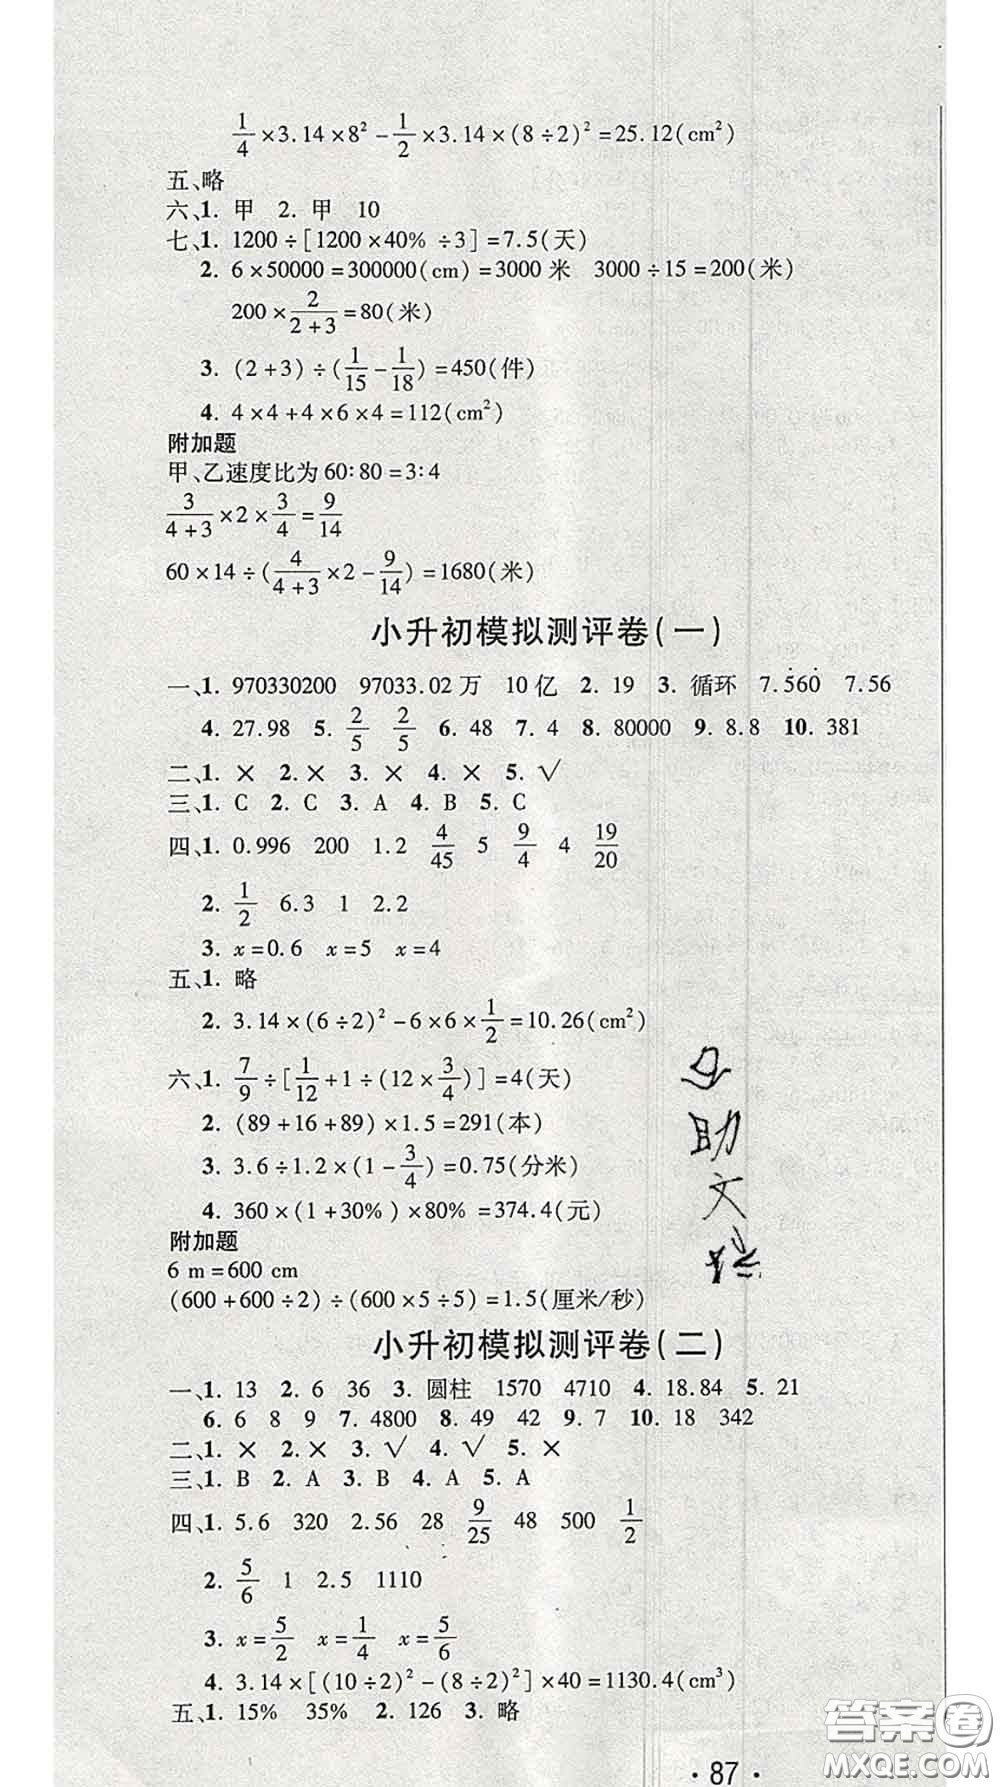 1/4×3.14×8²-1/2×3.14×(8÷2)²=25.12(cm²)
五、略
六、1. 甲 2. 甲 10
七、1. 1200÷[1200×40%÷3]=7.5(天)
2. 6×50000=300000(cm)=3000米 3000÷15=200(米)
200×2/(2+3)=80(米)
3. (2+3)÷(1/15-1/18)=450(件)
4. 4×4+4×6×4=112(cm²)
附加题
甲、乙速度比为60∶80=3∶4
3/(4+3)×2×3/4=9/14
60×14÷(4/(4+3)×2-9/14)=1680(米)
小升初模拟测评卷(一)
一、1. 970330200 97033.02万 10亿 2. 19 3. 循环 7.5̇60̇ 7.56
4. 27.98 5. 2/5 2/5 6. 48 7. 4 8. 80000 9. 8.8 10. 381
二、1. × 2. × 3. × 4. × 5. √
三、1. C 2. C 3. A 4. B 5. C
四、1. 0.996 200 1.2 4/45 5 9/4 4 19/20
2. 1/2 6.3 1 2.2
3. x=0.6 x=5 x=4
五、1. 略
2. 3.14×(6÷2)²-6×6×1/2=10.26(cm²)
六、1. 7/9÷[1/12+1÷(12×3/4)]=4(天)
2. (89+16+89)×1.5=291(本)
3. 3.6÷1.2×(1-3/4)=0.75(分米)
4. 360×(1+30%)×80%=374.4(元)
附加题
6 m=600 cm
(600+600÷2)÷(600×5÷5)=1.5(厘米/秒)
小升初模拟测评卷(二)
一、1. 13 2. 6 36 3. 圆柱 1570 4710 4. 18.84 5. 21
6. 6 8 9 7. 4800 8. 49 42 9. 7 10. 18 342
二、1. × 2. × 3. √ 4. √ 5. ×
三、1. B 2. A 3. B 4. A 5. A
四、1. 5.6 320 2.56 28 9/25 48 500 1/2
2. 5/6 1 2.5 1110
3. x=5/2 x=1/4 x=5/6
4. 3.14×[(10÷2)²-(8÷2)²]×40=1130.4(cm³)
五、1. 15% 35% 2. 126 3. 略
·87·
助
文
答案圈
MXQE.COM